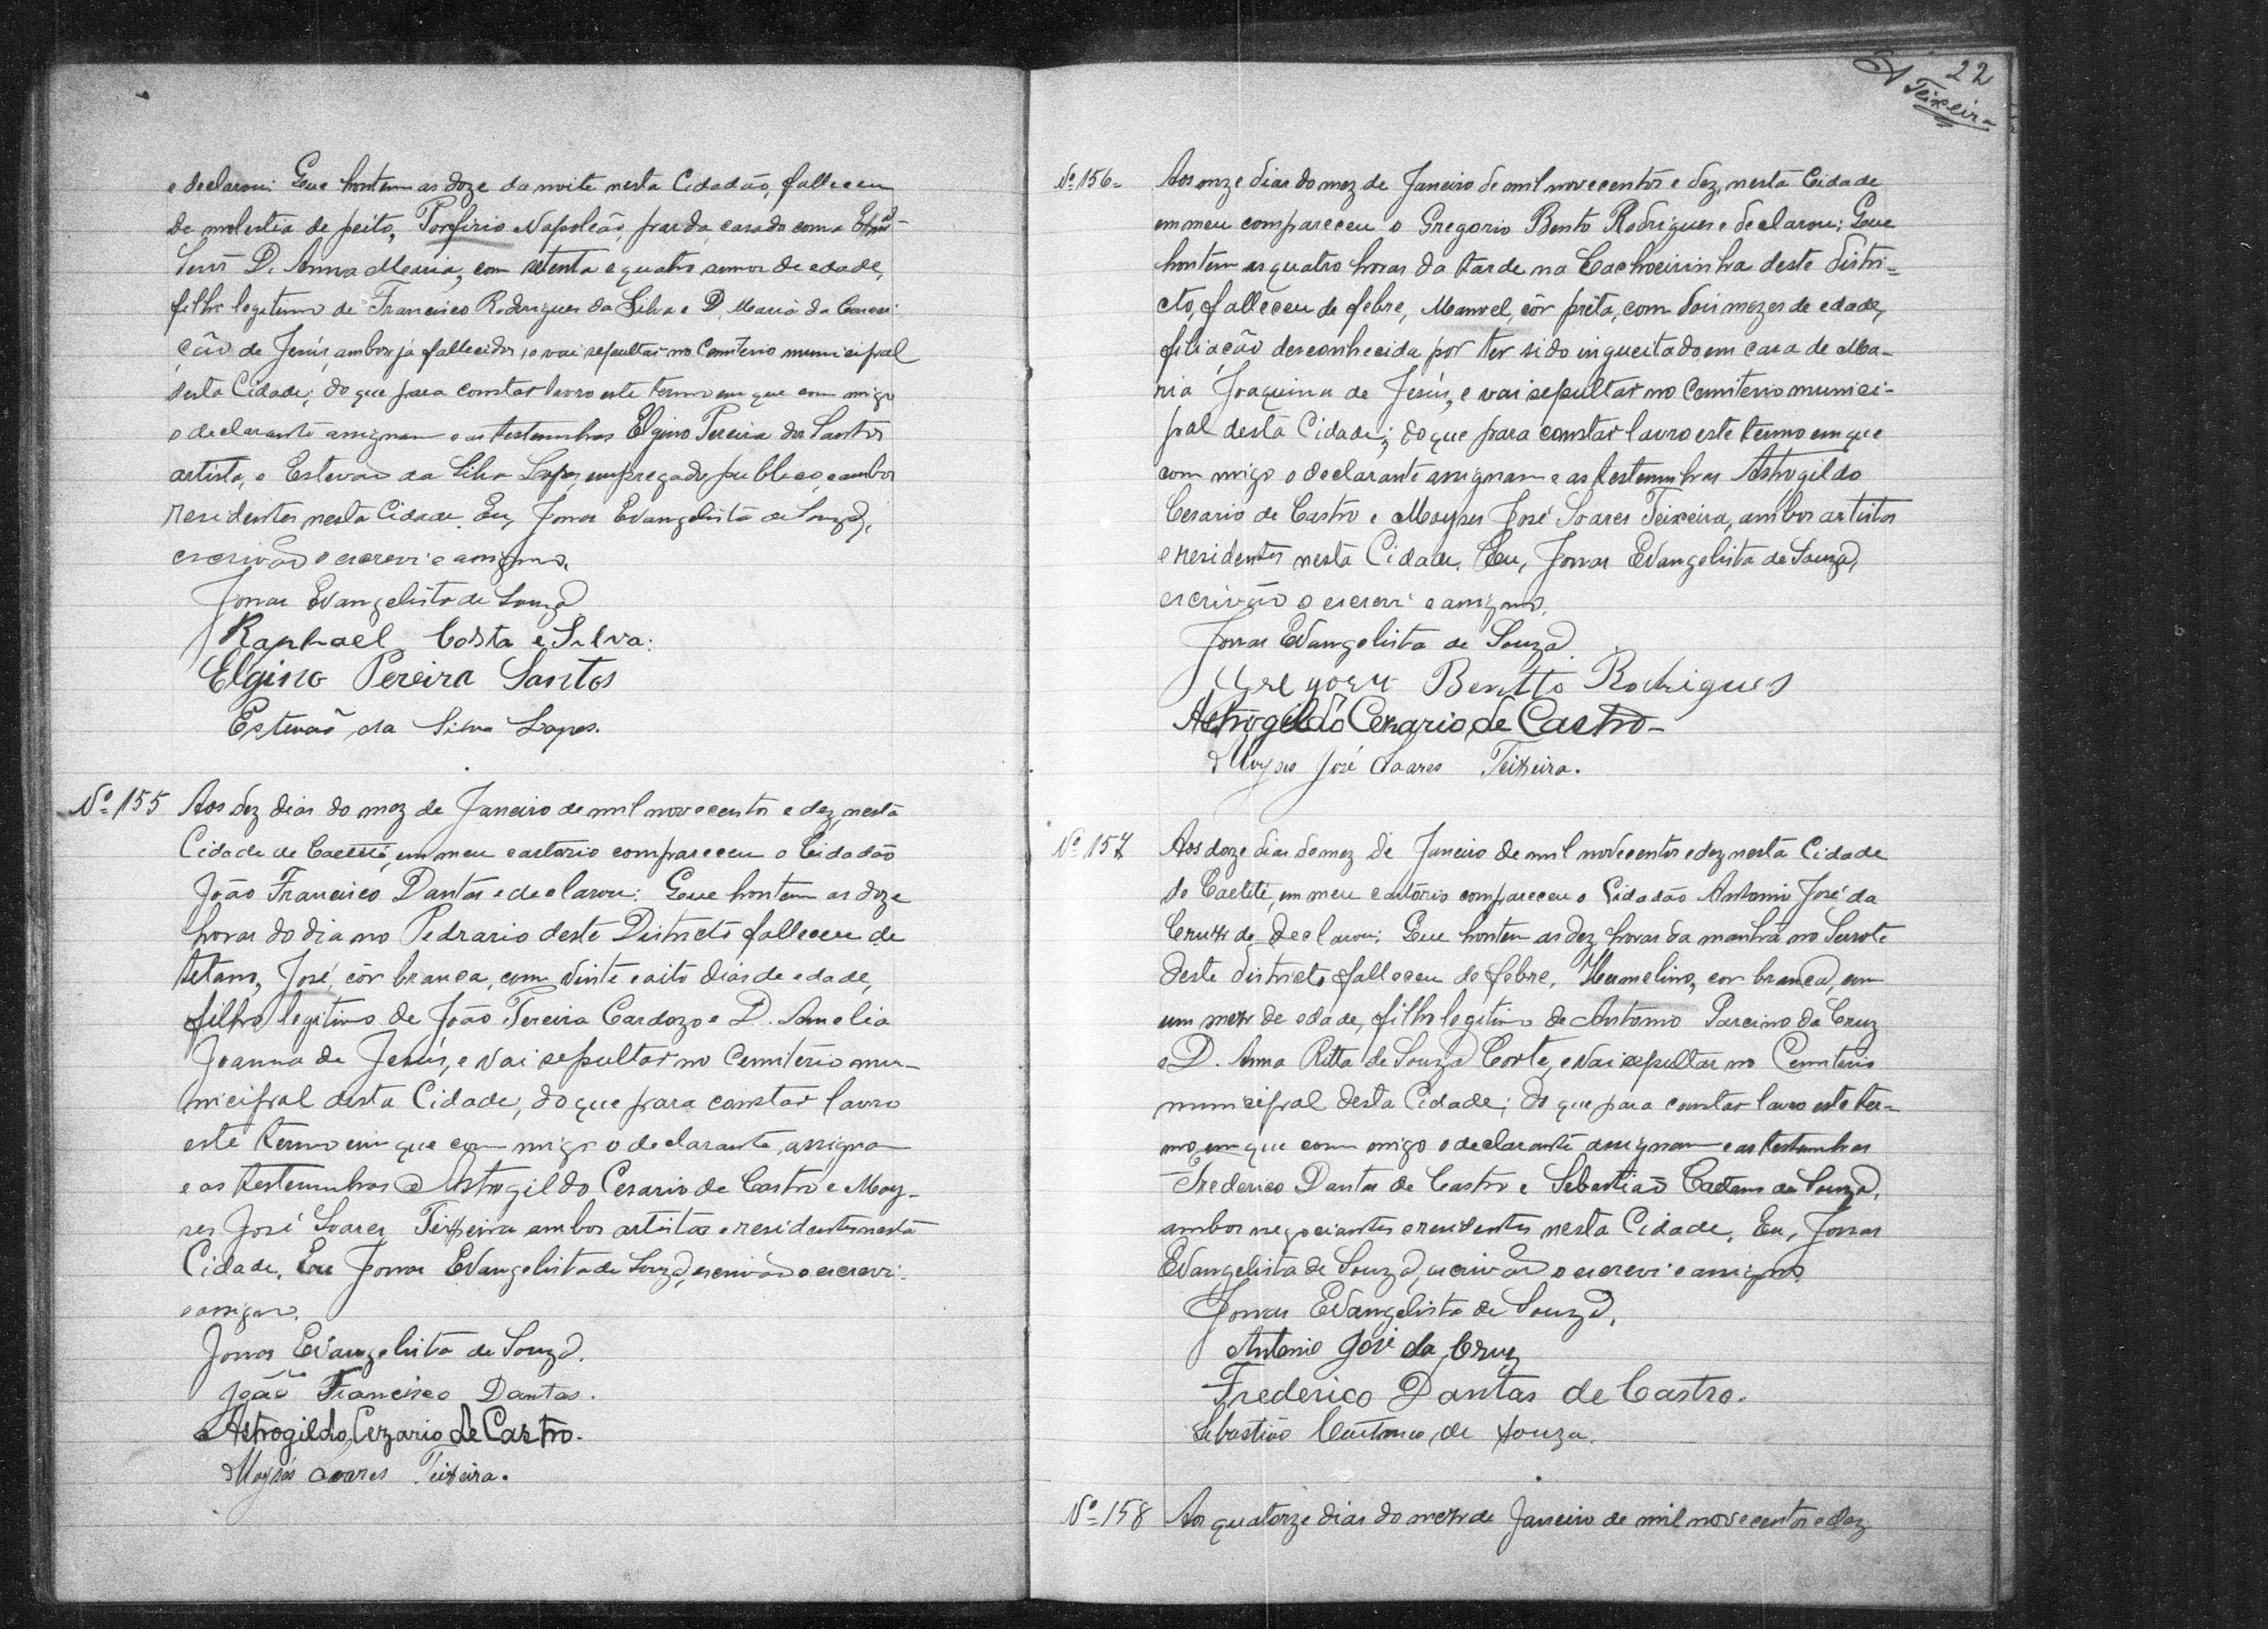 e declarou: Que hontem as doze da noite nesta Cidadão, falleceu
de molestia de peito, Porfirio Napoleão, pardo, casado com a Exmª
Senrª D. Anna Maria, com setenta e quatro annos de edade,
filho legitimo de Francisco Rodrigues da Silva e D. Maria da Concei-
ção de Jesús, ambos já fallecidos, e vai sepultar no Cemiterio municipal
desta Cidade; do que para constar lavro este termo em que com migo
o declarante assignam e as testemunhas Elgino Pereira dos Santos
artista, e Estevão da Silva Lopes, empregado publico, e ambos
residentes nesta Cidade. Eu, Jonas Evangelista de Souza,
escrivão o escrevi e assigno.
Jonas Evangelista de Souza
Raphael Costa e Silva.
Elgino Pereira Santos
Estevão da Silva Lopes.
Nº 155 Aos dez dias do mez de Janeiro de mil novecentos e dez, nesta
Cidade de Caetité, em meu cartorio compareceu o Cidadão
João Francisco Dantas e declarou: Que hontem as doze
horas do dia no Pedrario deste Districto falleceu de
tetano, José, côr branca, com vinte e oito dias de edade,
filho legitimo de João Pereira Cardozo e D. Amelia
Joanna de Jesús, e vai sepultar no Cemiterio mu-
nicipal desta Cidade, do que para constar lavro
este termo em que com migo o declarante, assignam
e as testemunhas Astrogildo Cesario de Castro e Moy-
ses José Soares Teixeira ambos artistas e residentes nesta
Cidade. Eu Jonas Evangelista de Souza, escrivão o escrevi
e assigno.
Jonas Evangelista de Souza.
João Francisco Dantas.
Astrogildo Cezario de Castro.
Moysés Soares Teixeira.
22
Teixeira
Nº 156 Aos onze dias do mez de Janeiro de mil novecentos e dez, nesta Cidade
em meu compareceu o Gregorio Bento Rodrigues e declarou: Que
hontem as quatro horas da tarde na Cachoeirinha deste distri-
cto, falleceu de febre, Manoel, côr preta, com dois mezes de edade,
filiação desconhecida por ter sido ingueitado em casa de Ma-
ria Joaquina de Jesús, e vai sepultar no Cemiterio munici-
pal desta Cidade; do que para constar lavro este termo em que
com migo o declarante assignam e as testemunhas Astrogildo
Cesario de Castro e Moyses José Soares Teixeira, ambos artistas
e residentes nesta Cidade. Eu, Jonas Evangelista de Souza,
escrivão o escrevi e assigno.
Jonas Evangelista de Souza
Bentto Rodrigues
Astrogildo Cezario de Castro
Moyses José Soares Teixeira.
Nº 157 Aos doze dias do mez de Janeiro de mil novecentos e dez nesta Cidade
de Caetité, em meu cartorio compareceu o Cidadão Antonio José da
Cruz e declarou: Que hontem as dez horas da manhã no Serrote
deste districto falleceu de febre, Hermelino, cor branca, com
um mez de edade, filho legitimo de Antonio Parcino da Cruz
e D. Anna Ritta de Souza Corte, e vai sepultar no Cemiterio
municipal desta Cidade; do que para constar lavro este ter-
mo em que com migo o declarante assignam e as testemunhas
Frederico Dantas de Castro e Sebastião Caetano de Souza,
ambos negociantes e residentes nesta Cidade. Eu, Jonas
Evangelista de Souza, escrivão o escrevi e assigno.
Jonas Evangelista de Souza.
Antonio José da Cruz
Frederico Dantas de Castro.
Sebastião Caetano de Souza.
Nº 158 Aos quatorze dias do mez de Janeiro de mil novecentos e dez